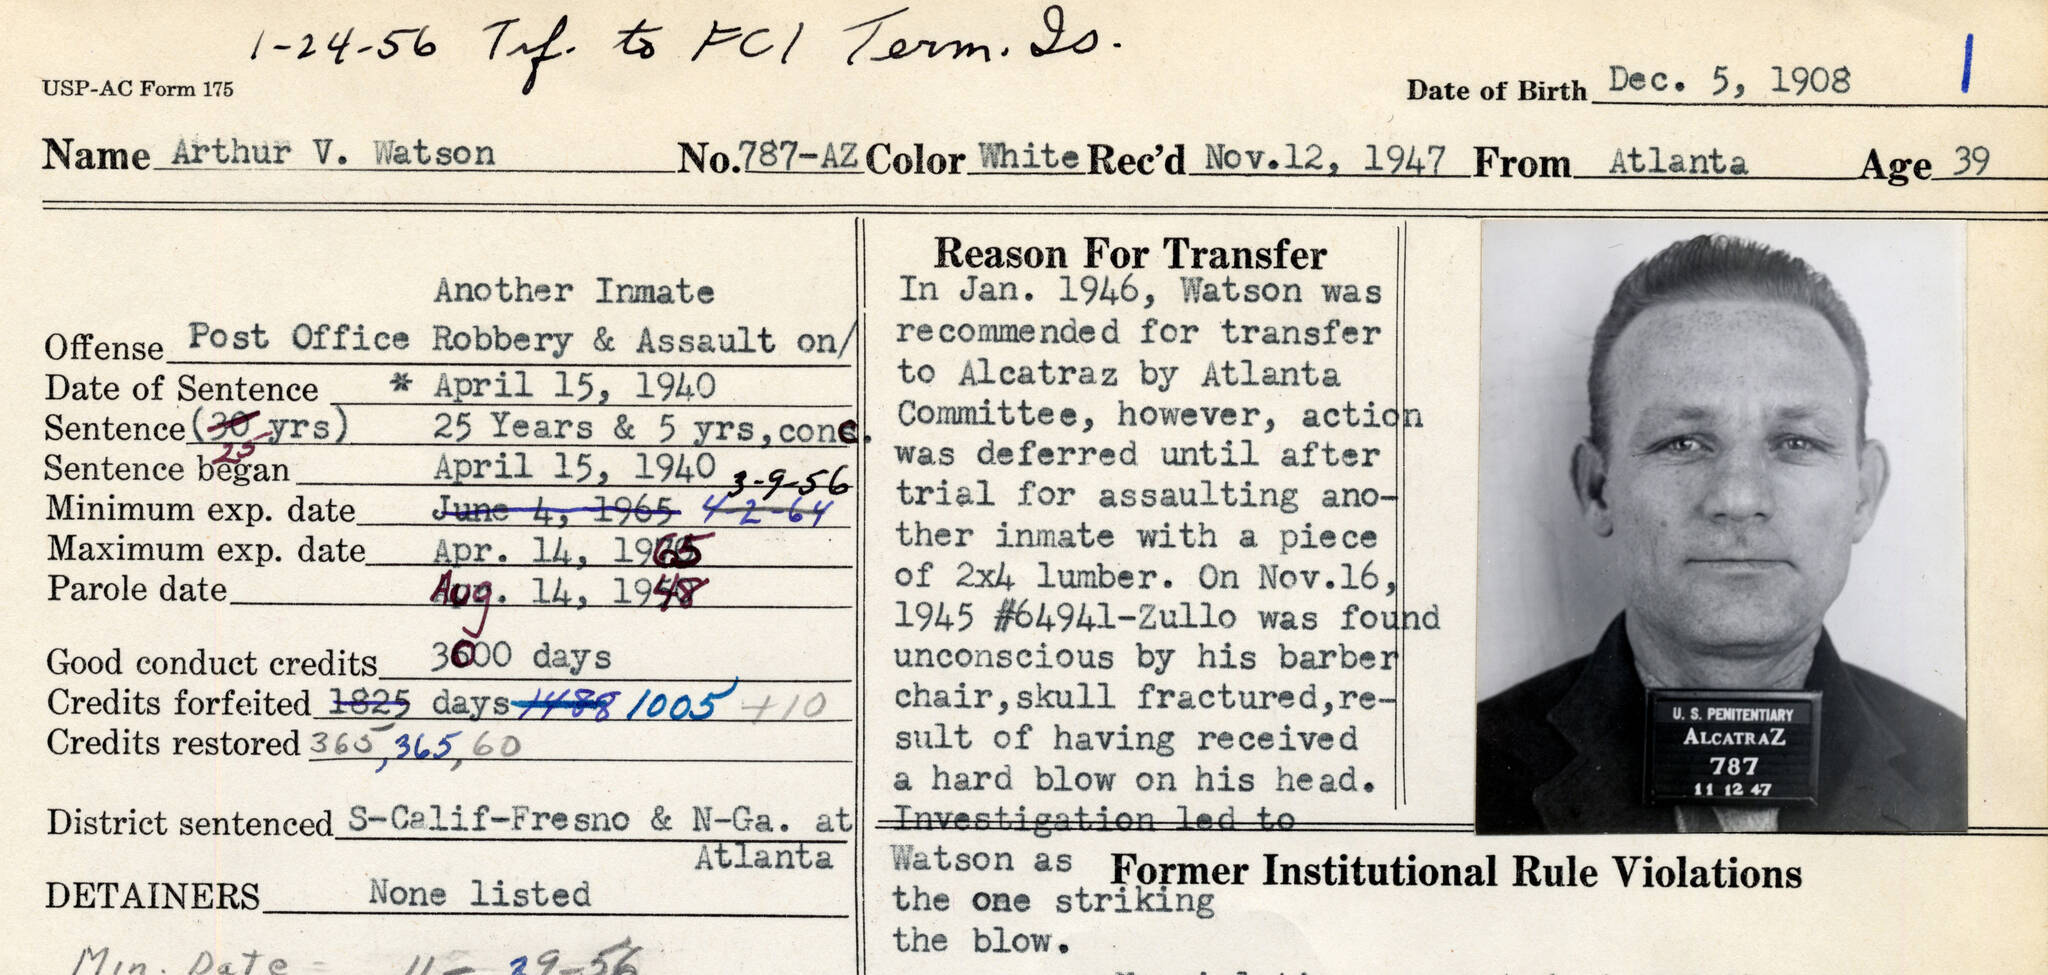 1-24-56 Trf. to FCI Term. Is.
1
USP-AC Form 175
Date of Birth Dec. 5, 1908
Name Arthur V. Watson No. 787-AZ Color White Rec'd Nov.12, 1947 From Atlanta Age 39
Another Inmate
Offense Post Office Robbery & Assault on/
Date of Sentence * April 15, 1940
Sentence (30 yrs) 25 Years & 5 yrs,conc.
25
Sentence began April 15, 1940
3-9-56
Minimum exp. date June 4, 1965 4-2-64
Maximum exp. date Apr. 14, 1965
Parole date Aug. 14, 1948
Good conduct credits 3000 days
Credits forfeited 1825 days 1488 1005 +10
Credits restored 365, 365, 60
District sentenced S-Calif-Fresno & N-Ga. at
Atlanta
DETAINERS None listed
Min. Date - 11-29-56
Reason For Transfer
In Jan. 1946, Watson was
recommended for transfer
to Alcatraz by Atlanta
Committee, however, action
was deferred until after
trial for assaulting ano-
ther inmate with a piece
of 2x4 lumber. On Nov.16,
1945 #64941-Zullo was found
unconscious by his barber
chair,skull fractured,re-
sult of having received
a hard blow on his head.
Investigation led to
Watson as
the one striking
the blow.
Former Institutional Rule Violations
U. S. PENITENTIARY
ALCATRAZ
787
11 12 47